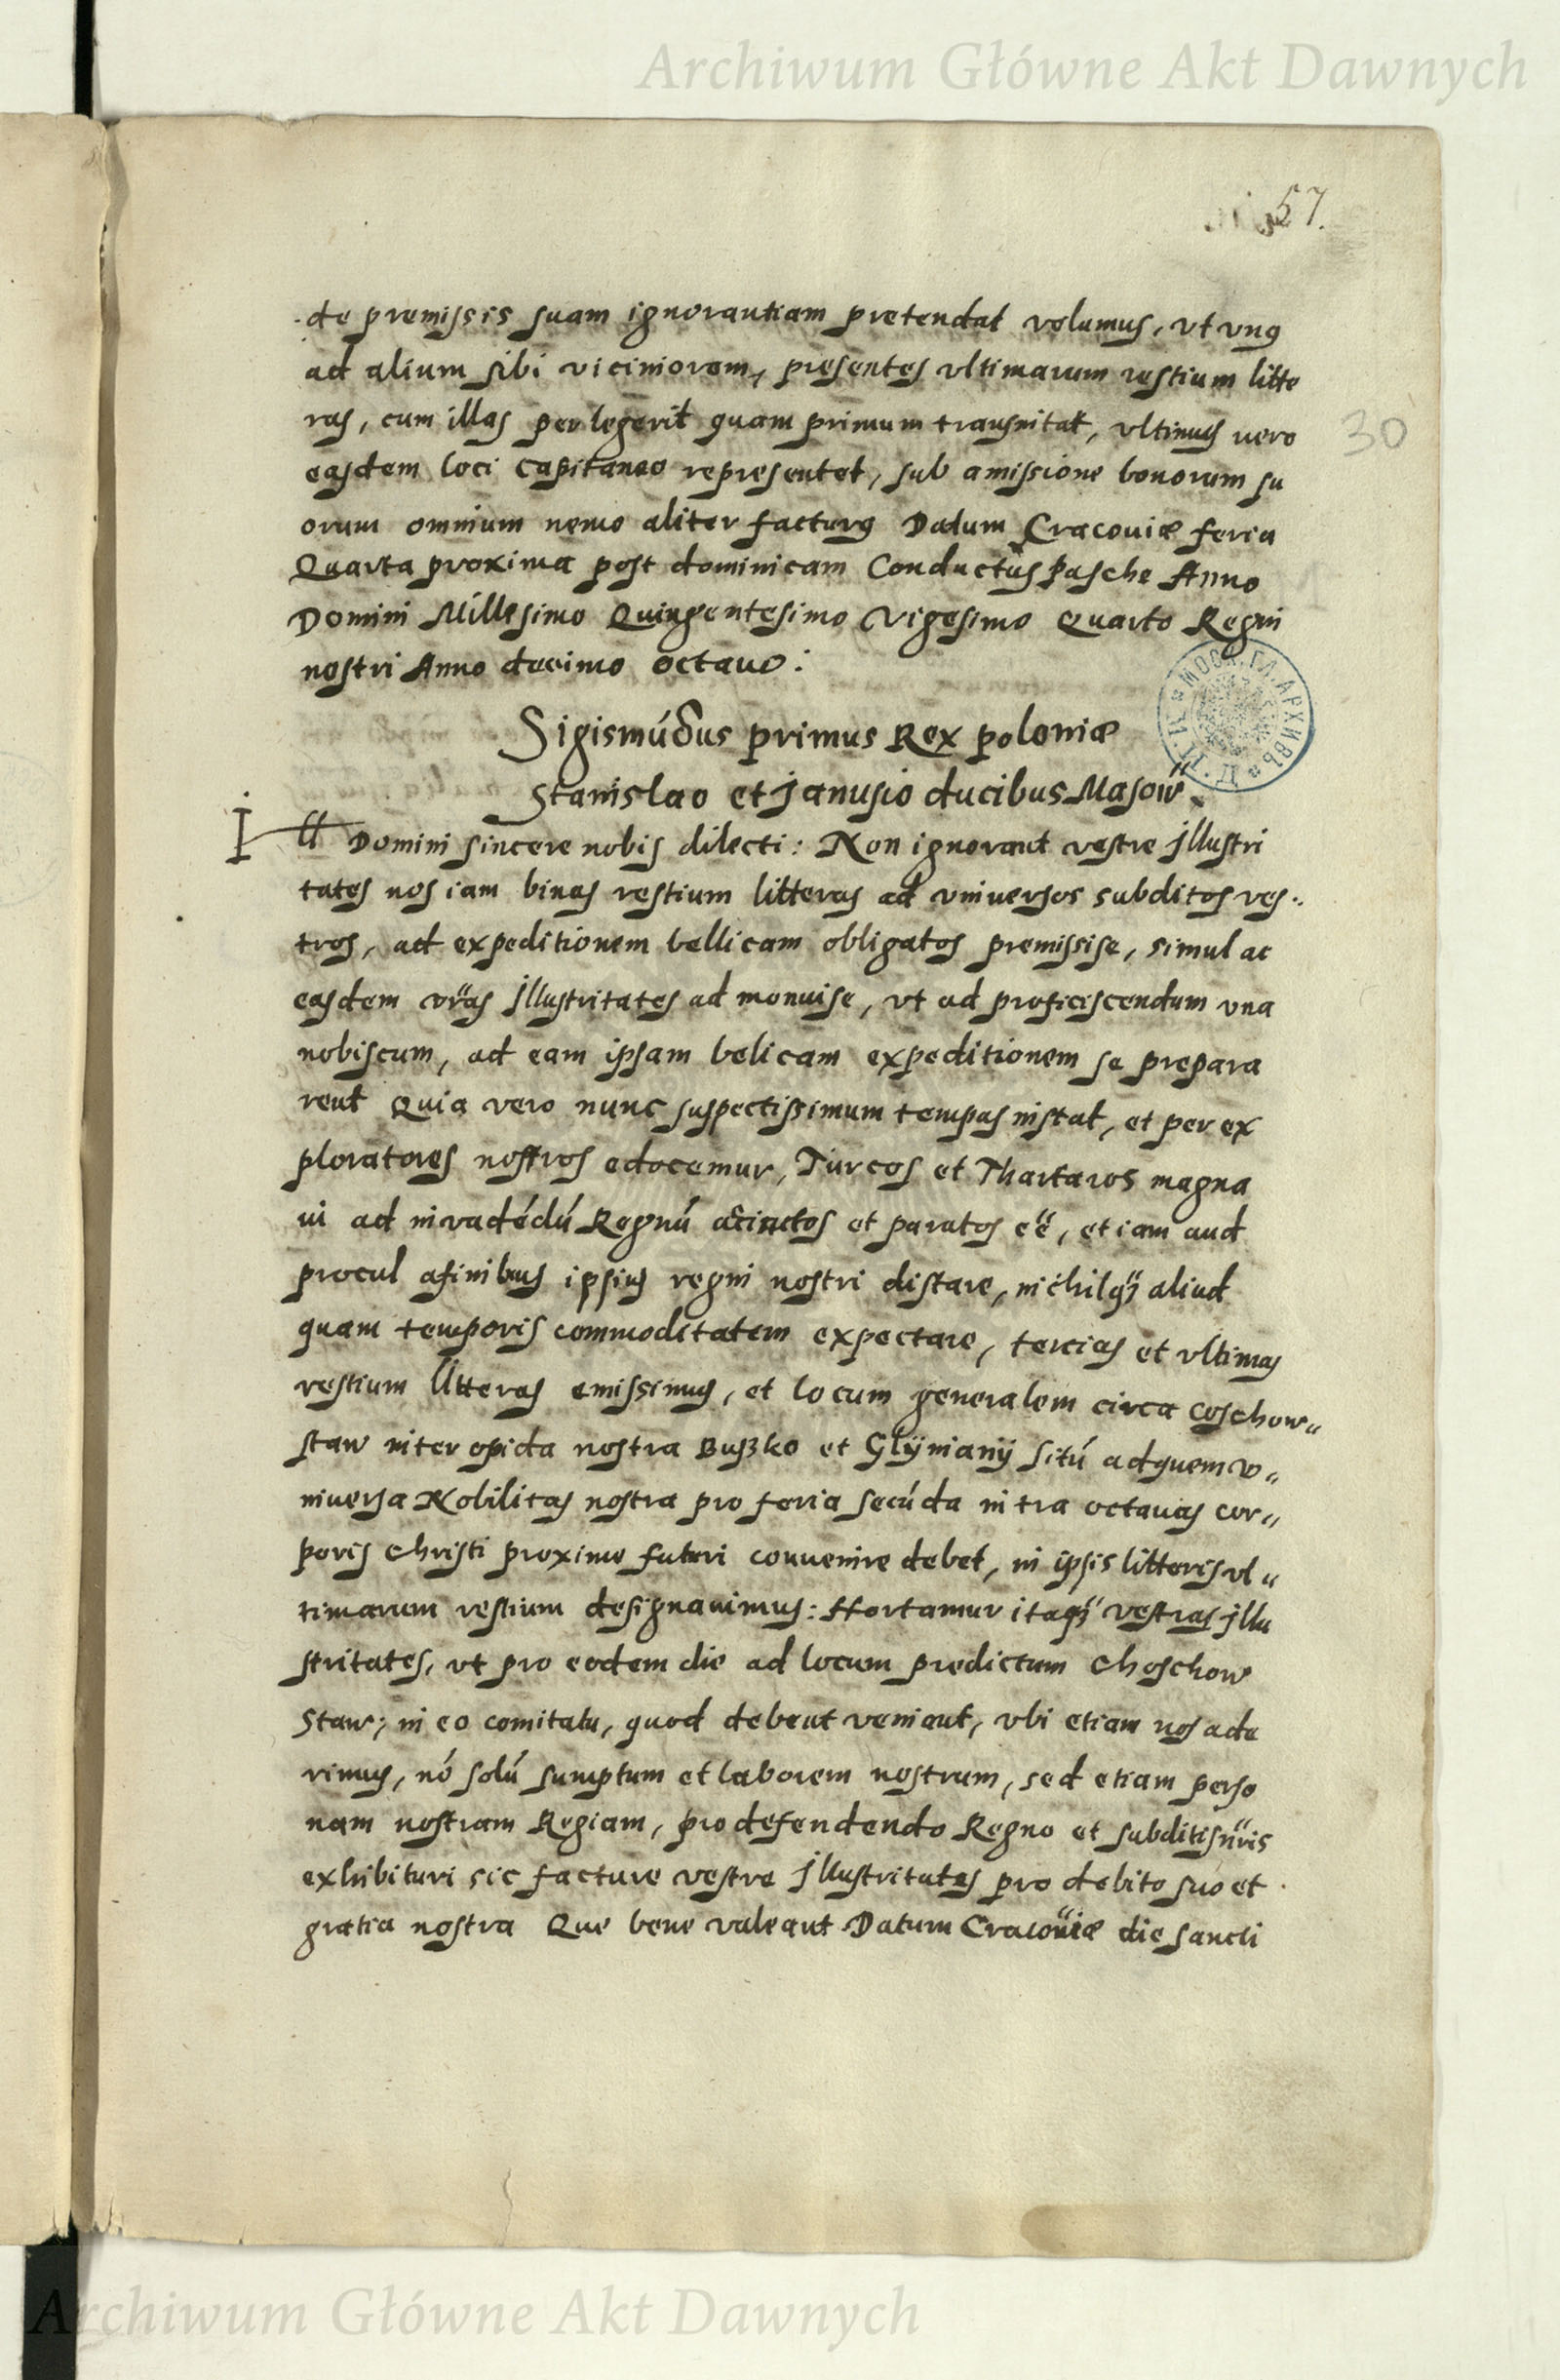 Archiwum Główne Akt Dawnych
57.
de premissis suam ignorantiam pretendat volumus, vt vnq
ad alium sibi viciniorem, presentes vltimarum restium litte
ras, cum illas perlegerit quam primum transmitat, vltimus vero
easdem loci capitaneo representet, sub amissione bonorum su
30
orum omnium nemo aliter facturq Datum Cracouiæ feria
Quarta proxima post dominicam Conductus pasche Anno
Domini Millesimo Quingentesimo Vigesimo Quarto Regni
nostri Anno decimo octauo:
Sigismúdus primus Rex poloniæ
Stanislao et Janusio ducibus Masow
Ill Domini sincere nobis dilecti: Non ignorant vestre Illustri
tates nos iam binas restium litteras ad vniuersos subditos ves„
tros, ad expeditionem bellicam obligatos premissise, simul ac
easdem vras Illustritates ad monuise, vt ad proficiscendum vna
nobiscum, ad eam ipsam belicam expeditionem se prepara
rent Quia vero nunc suspectissimum tempus instat, et per ex
ploratores nostros edocemur, Turcos et Thartaros magna
ui ad invadédú Regnú acinctos et paratos eē, et iam aud
procul afinibus ipsius regni nostri distare, nichilqȝ aliud
quam temporis commoditatem expectare, tercias et vltimas
restium litteras emissimus, et locum generalem circa Coschow„
staw inter opida nostra Buszko et Glÿnianÿ sitú adquem v„
niuersa Nobilitas nostra pro feria secúda intra octauas cor„
poris Christi proxime futuri conuenire debet, in ipsis litteris vl„
timarum restium designauimus: Hortamur itaqȝ vestras Illu
stritates, vt pro eodem die ad locum predictum Choschow
Staw; in eo comitatu, quod debent veniant, vbi etiam nos ade
rimus, nó solú sumptum et laborem nostrum, sed etiam perso
nam nostram Regiam, pro defendendo Regno et subditis nris
exhibituri sic facture vestre Illustritates pro debito suo et
gratia nostra Que bene valeant Datum Cracouiæ die sancti
МОСК. ГЛ. АРХИВЪ
Archiwum Główne Akt Dawnych